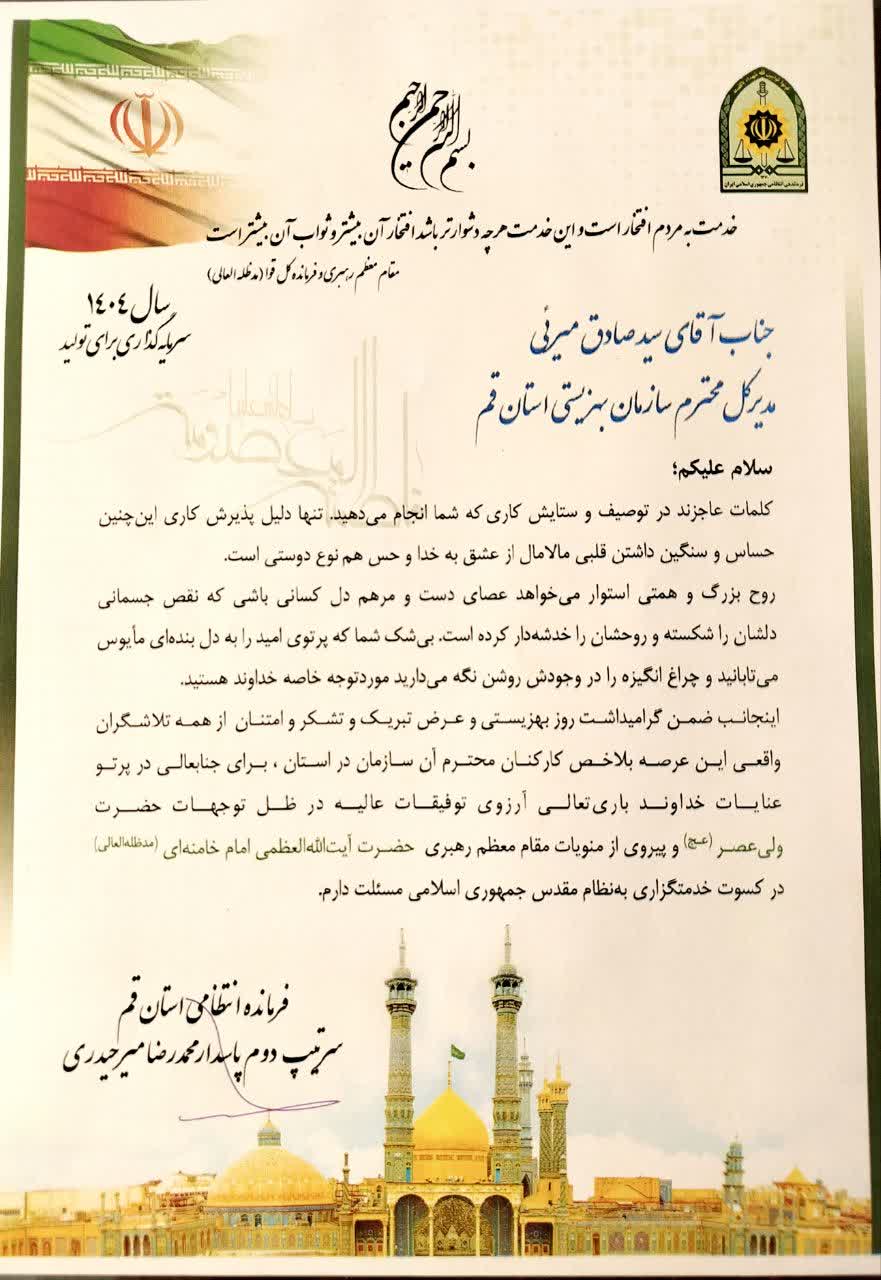 بسم الله الرحمن الرحیم
فرماندهی انتظامی جمهوری اسلامی ایران
خدمت به مردم افتخار است و این خدمت هرچه دشوارتر باشد افتخار آن بیشتر و ثواب آن بیشتر است
مقام معظم رهبری و فرمانده کل قوا (مدظله العالی)
سال ۱۴۰۴
سرمایه‌گذاری برای تولید
جناب آقای سید صادق میرئی
مدیرکل محترم سازمان بهزیستی استان قم
سلام علیکم؛
کلمات عاجزند در توصیف و ستایش کاری که شما انجام می‌دهید. تنها دلیل پذیرش کاری این‌چنین
حساس و سنگین داشتن قلبی مالامال از عشق به خدا و حس هم نوع دوستی است.
روح بزرگ و همتی استوار می‌خواهد عصای دست و مرهم دل کسانی باشی که نقص جسمانی
دلشان را شکسته و روحشان را خدشه‌دار کرده است. بی‌شک شما که پرتوی امید را به دل بنده‌ای مأیوس
می‌تابانید و چراغ انگیزه را در وجودش روشن نگه می‌دارید موردتوجه خاصه خداوند هستید.
اینجانب ضمن گرامیداشت روز بهزیستی و عرض تبریک و تشکر و امتنان از همه تلاشگران
واقعی این عرصه بلاخص کارکنان محترم آن سازمان در استان ، برای جنابعالی در پرتو
عنایات خداوند باری‌تعالی آرزوی توفیقات عالیه در ظل توجهات حضرت
ولی‌عصر (عج) و پیروی از منویات مقام معظم رهبری حضرت آیت‌الله‌العظمی امام خامنه‌ای (مدظله‌العالی)
در کسوت خدمتگزاری به‌نظام مقدس جمهوری اسلامی مسئلت دارم.
فرمانده انتظامی استان قم
سرتیپ دوم پاسدار محمدرضا میرحیدری